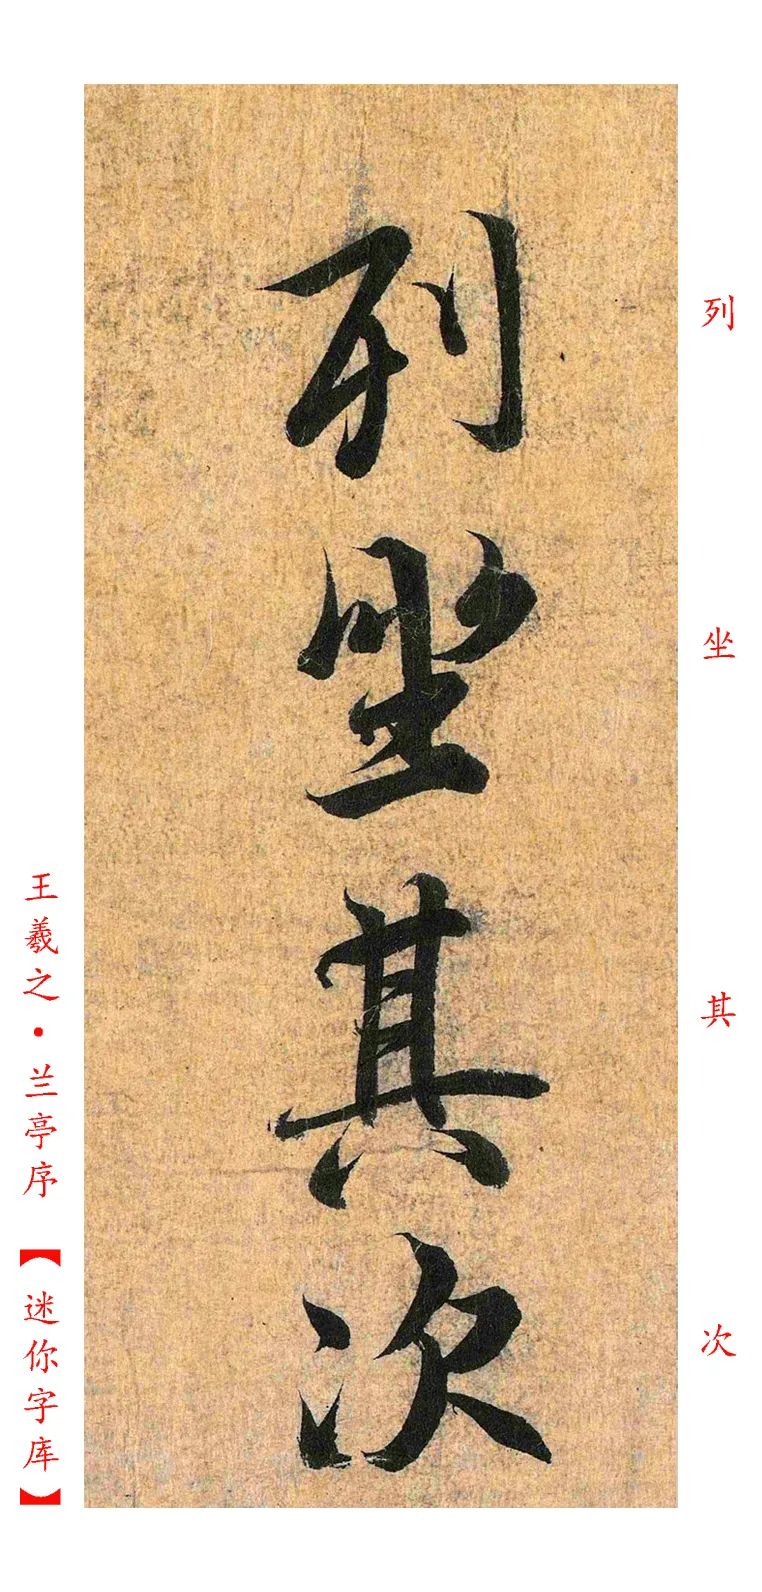 列坐其次
列坐其次
王羲之·兰亭序【迷你字库】